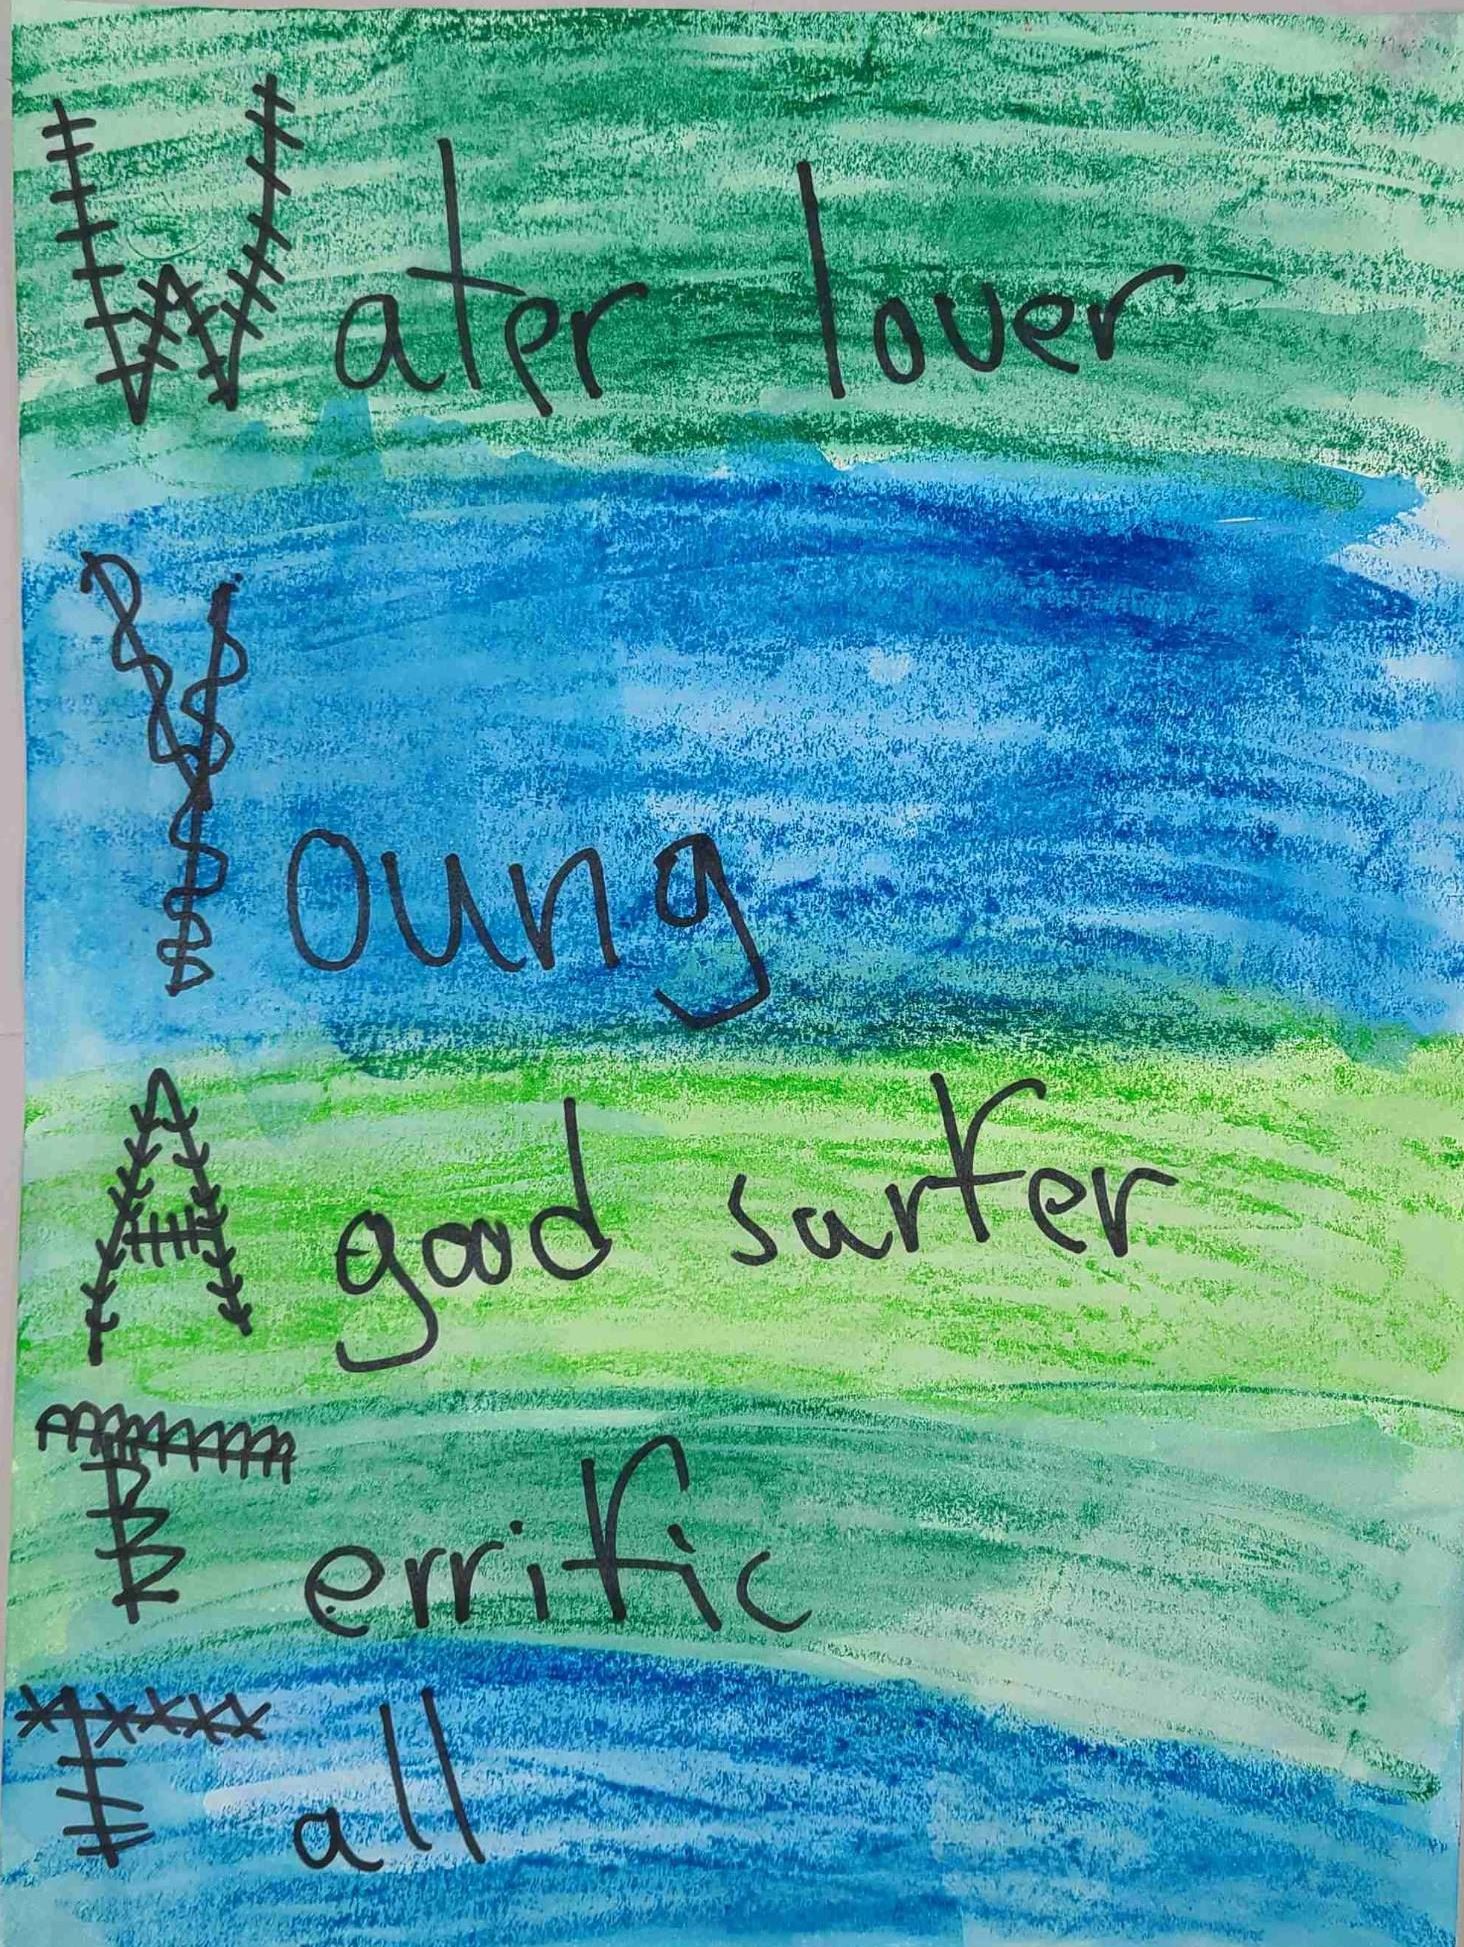 Water lover
Young
A good surfer
Terrific
Tall